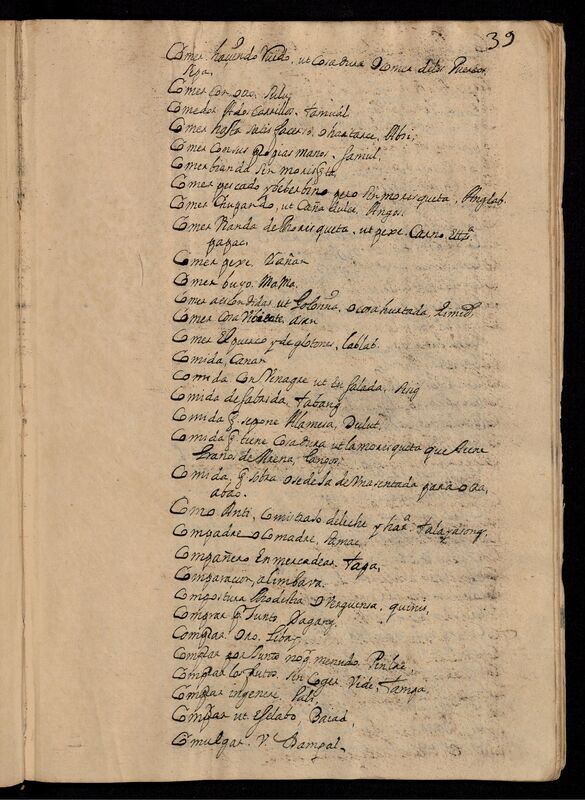 39
Comer haçiendo Ruido, ut Cosa dura, O comer delos Puercos,
Comer con otro, Salu,
Comedor A dos Carrillos, tamuàl
Comer hasta satisfacerse, o hartarse, Absi,
Comer con sus propias manos, Samul,
Comer bianda sin morisqta,
Comer pescado y deber bino pero sin morisqueta, Anglab.
Comer Chupando, ut Caña dulce, Angos,
Comer Vianda de Morisqueta, ut pexe, Carne, Etta.
papac,
Comer pexe,
Comer buyo, Mama,
Comer a escondidas, ut Golosina, o cosa hurtada, Limed,
Comer Cosa
Comer El puerco y de glotones, lablab.
Comida, Canàn
Comida Con Vinagre ut Ensalada, Asig
Comida desabrida, tabang
Comida q̃ sepone Alamesa, Dulut,
Comida q̃ tiene Cosa dura ut la morisqueta que tiene
Granos de Arena, Langos,
Comida, q̃ sobra o se deja de una sentada para otra,
abao.
Como Anti, Comistrado de leche y hara. talayasong,
Compadre o Comadre,
Compañero En mercadear, tapa,
Comparacion, alimbava.
Compostura Modestia o Verguensa, quinis,
Comprar pr Junto Pagang
Comprar Oro, Libay
Comprar por Junto no pr menudo, Paclas
Comprar los frutos, sin Coger, Vide, tampa
Comprar in genere, Sali,
Comprar ut Esclabo, Baiad,
Comulgar V. Dampal